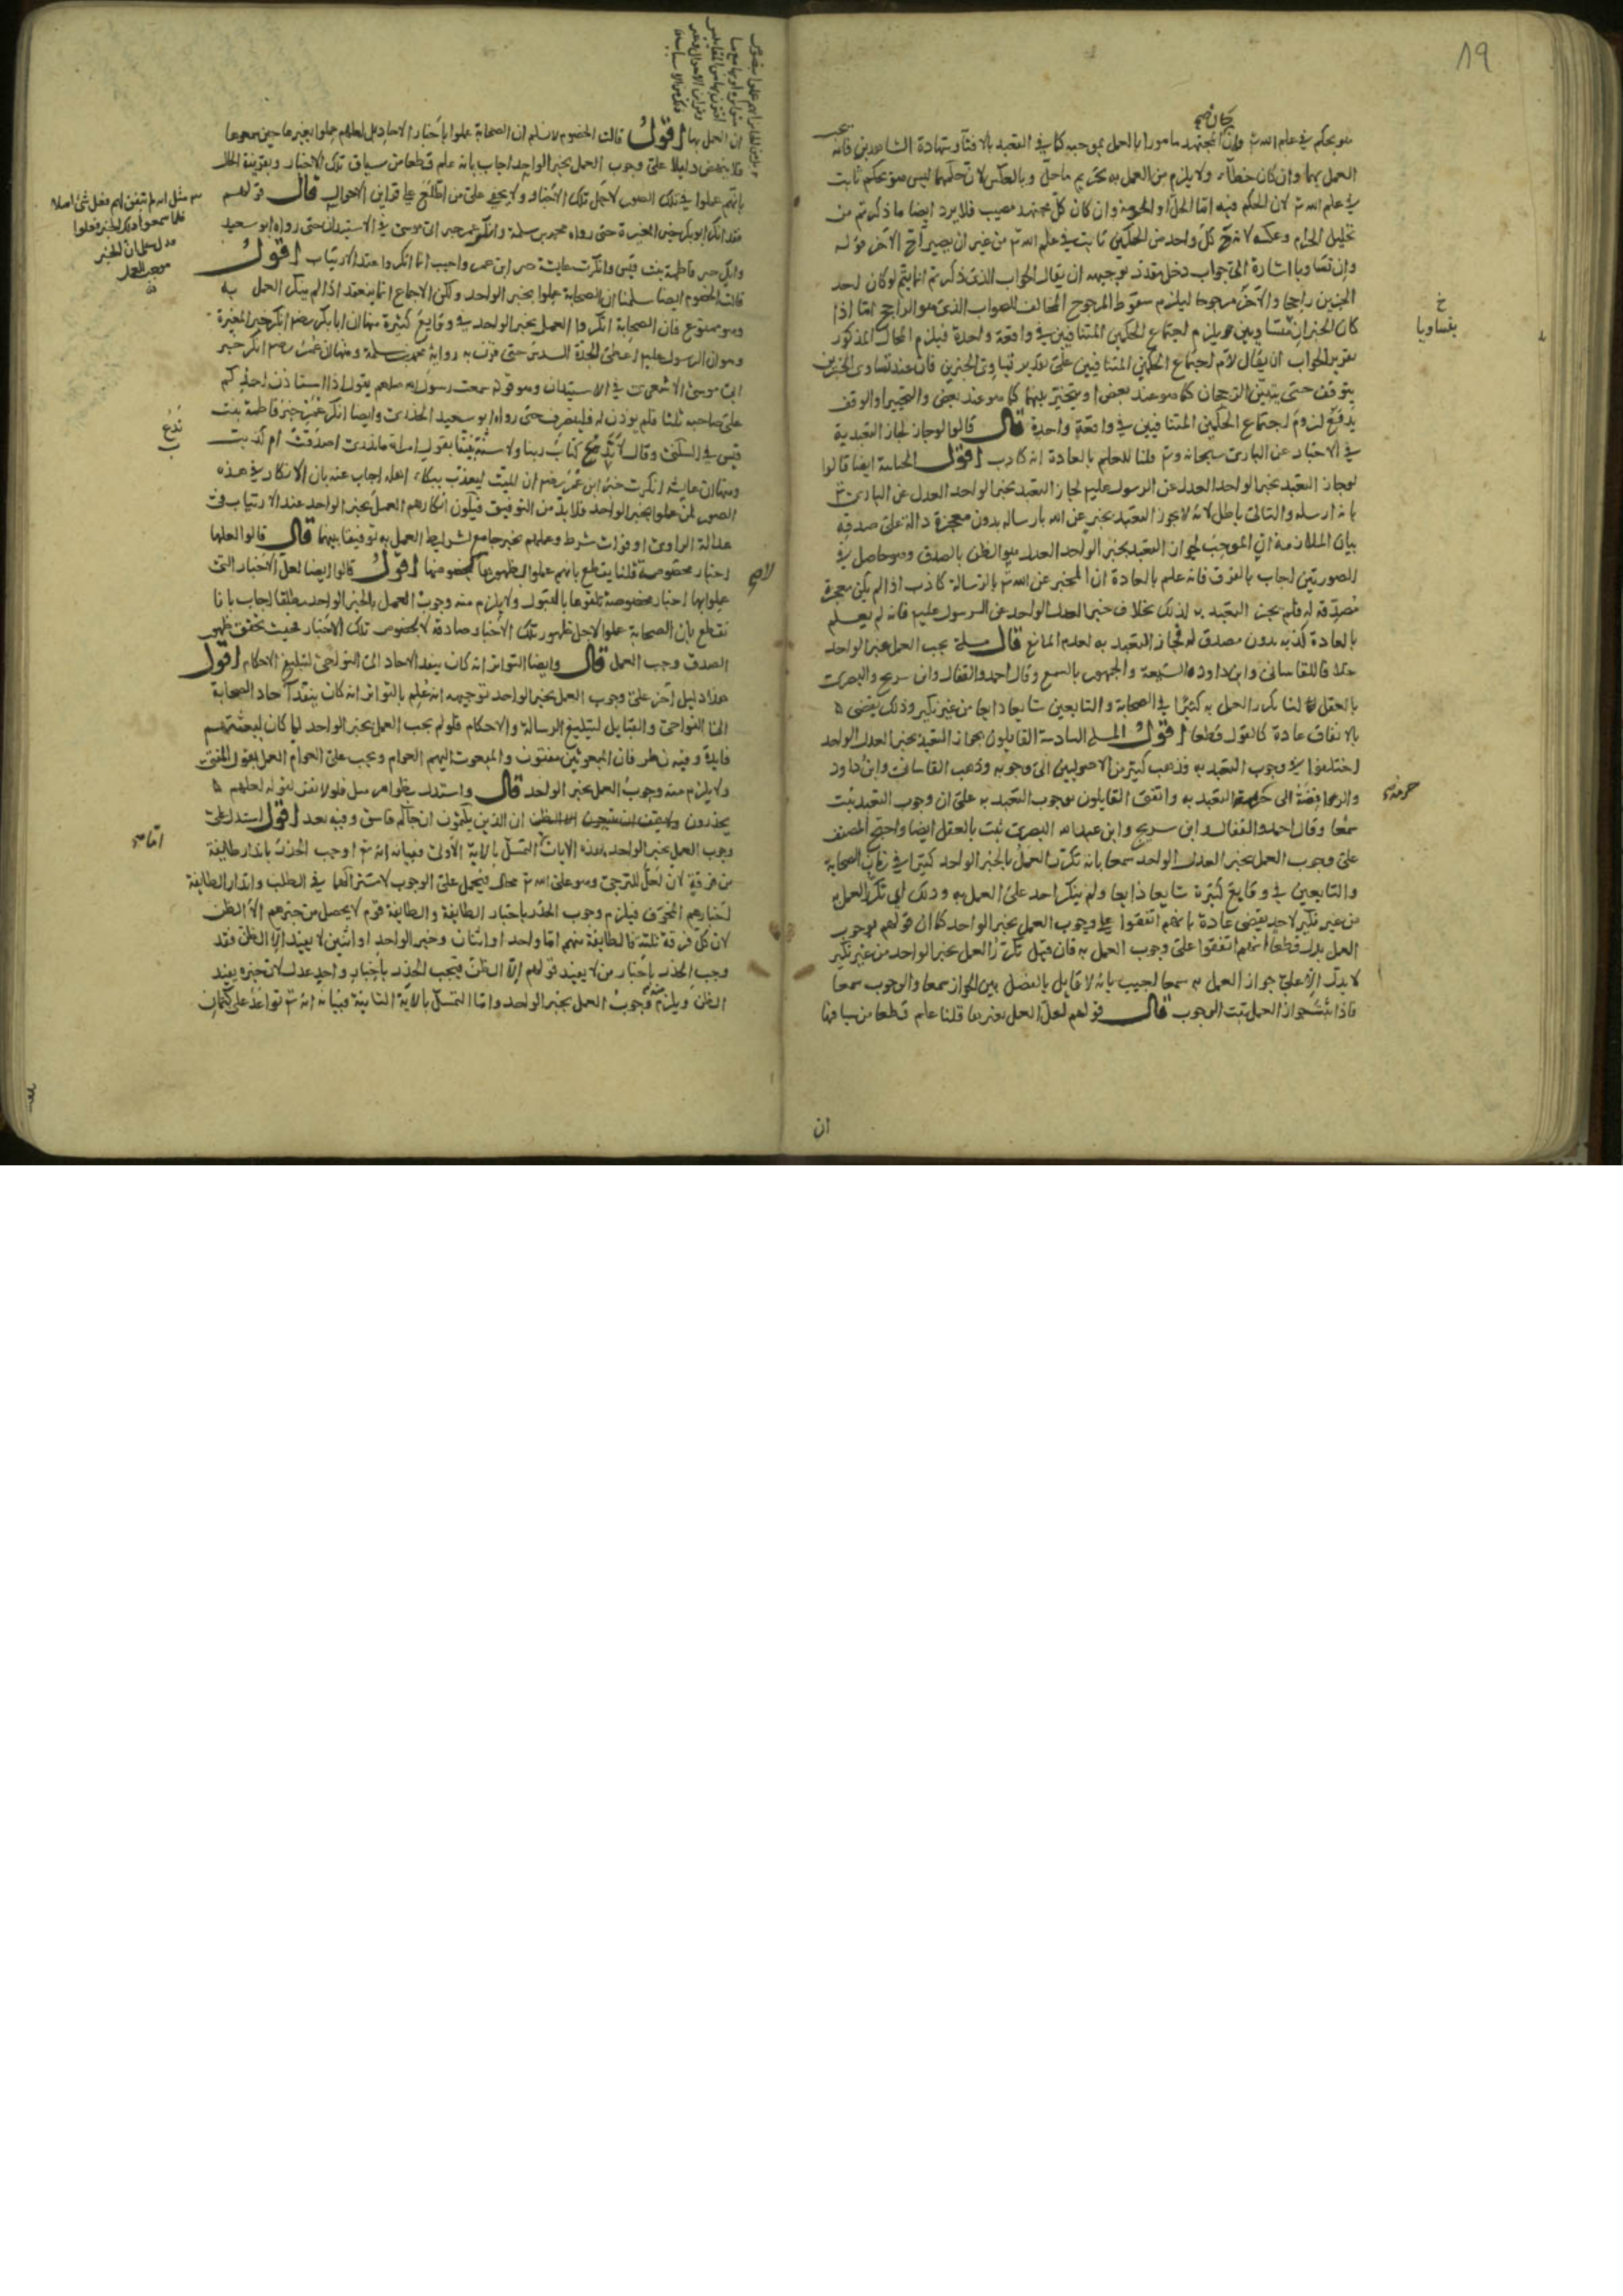 19
كان صح
هو بحكم في علم الله تع وان المجتهد مامور بالعمل بموجبه كما في التعبد بالافتاء وشهادة الشاهدين فانه يجب
العمل بهما وان كان خطاء ولا يلزم من العمل به تحريم ما حل وبالعكس لان حكمهما ليس هو بحكم ثابت
في علم الله تع لان الحكم فيه اما الحل او الحرمة وان كان كل مجتهد مصيب فلا يرد ايضا ما ذكرتم من
تحليل الحرام وعكسه لان كل واحد من الحكمين ثابت في علم الله تع من غير ان يصير احد الآخر قوله
وان تساويا اشارة الى جواب دخل مقدر توجيهه ان يقال الجواب الذي ذكرتم انما يتم لو كان احد
الخبرين راجحا والآخر مرجوحا ليلزم سقوط المرجوح المخالف للصواب الذي هو الراجح اما اذا
كان الخبران متساويين يلزم اجتماع الحكمين المتنافيين في واقعة واحدة فيلزم المحال المذكور
تقرير الجواب ان يقال لا م اجتماع الحكمين المتنافيين على تقدير تساوى الخبرين فان عند تساوى الخبرين
يتوقف حتى يتبين الرجحان كما هو عند بعض او يتخير بينهما كما هو عند بعض والتخيير او الوقف
يدفع لزوم اجتماع الحكمين المتنافيين في واقعة واحدة قال قالوا لو جاز لجاز التعبد به
في الاخبار عن البارى سبحانه وتع قلنا للعلم بالعادة انه كاذب اقول الجبائية ايضا قالوا
لو جاز التعبد بخبر الواحد العدل عن الرسول عليم لجاز التعبد بخبر الواحد العدل عن البارى تع
بانه ارسله والتالى باطل لانه لا يجوز التعبد بخبر عن الله بارساله بدون معجزة دالة على صدقه
بيان الملازمة ان الموجب لجواز التعبد بخبر الواحد العدل هو الظن بالصدق وهو حاصل في
الصورتين اجاب بالفرق فانه علم بالعادة ان المخبر عن الله تع بالرسالة كاذب اذا لم يكن معجزة
مصدقة له فلم يجز التعبد به لذلك بخلاف خبر العدل الواحد عن الرسول عليم فانه لم يعلم
بالعادة كذبه بدون مصدق له فجاز التعبد به لعدم المانع قال مسئلة يجب العمل بخبر الواحد
خلافا للقاسانى وابن داود والشيعة والجمهور بالسمع وقال احمد والقفال وابن سريج والبصرى
بالعقل لنا تكرر العمل به كثيرا في الصحابة والتابعين شايعا ذايعا من غير نكير وذلك يقضى
بالاتفاق عادة كالقول قطعا اقول المسئلة السادسة القايلون بجواز التعبد بخبر العدل الواحد
اختلفوا في وجوب التعبد به فذهب كثير من الاصوليين الى وجوبه وذهب القاسانى وابن داود
والرافضة الى حرمة التعبد به واتفق القايلون بوجوب التعبد به على ان وجوب التعبد يثبت
سمعا وقال احمد والقفال وابن سريج وابن عبد الله البصرى ثبت بالعقل ايضا واحتج المصنف
على وجوب العمل بخبر العدل الواحد سمعا بانه تكرر العمل بالخبر الواحد كثيرا في زمان الصحابة
والتابعين في وقايع كثيرة شايعا ذايعا ولم ينكر احد على العمل به وذلك اي تكرر العمل به
من غير نكير لاحد يقضى عادة بانهم اتفقوا على وجوب العمل بخبر الواحد كما ان قولهم بوجوب
العمل يدل قطعا انهم اتفقوا على وجوب العمل به فان قيل تكرر العمل بخبر الواحد من غير نكير
لا يدل الا على جواز العمل به سمعا اجيب بانه لا قايل بالفصل بين الجواز سمعا والوجوب سمعا
فاذا ثبت جواز العمل ثبت الوجوب قال قولهم لعل العمل بغيرها قلنا علم قطعا من سياقها
ان
خ
بتساويا
حرمة صح
ان العمل بها اقول قالت الخصوم لا نسلم ان الصحابة عملوا باخبار الاحاد بل لعلهم عملوا بغيرها حين سمعوها
فلا ينهض دليلا على وجوب العمل بخبر الواحد اجاب بانه علم قطعا من سياق تلك الاخبار وبقرينة الحال
بانهم عملوا في تلك الصور لاجل تلك الاخبار ولا يخفى على من اطلع على قراين الاحوال قال قولهم
فقد انكر ابو بكر خبر المغيرة حتى رواه محمد بن مسلمة وانكر عمر خبر ابى موسى في الاستيذان حتى رواه ابو سعيد
وانكر خبر فاطمة بنت قيس وانكرت عايشة خبر ابن عمر واجيب انما انكروا عند الارتياب اقول
قالت الخصوم ايضا سلمنا ان الصحابة عملوا بخبر الواحد ولكن الاجماع انما ينعقد اذا لم ينكر العمل به
وهو ممنوع فان الصحابة انكروا العمل بخبر الواحد في وقايع كثيرة منها ان ابا بكر رضه انكر خبر المغيرة
وهو ان الرسول عليم اعطى الجدة السدس حتى قرن به رواية محمد بن مسلمة ومنها ان عمر رضه انكر خبر
ابى موسى الاشعرى في الاستيذان وهو قوله سمعت رسول الله صلعم يقول اذا استاذن احدكم
على صاحبه ثلثا فلم يوذن له فلينصرف حتى رواه ابو سعيد الخدرى وايضا انكر عمر خبر فاطمة بنت
قيس في السكنى وقال لا ندع كتاب ربنا ولا سنة نبينا بقول امراة ما ندرى اصدقت ام كذبت
ومنها ان عايشة انكرت خبر ابن عمر رضه ان الميت ليعذب ببكاء اهله اجاب عنه بان الانكار في هذه
الصور لمن عملوا بخبر الواحد فلا بد من التوفيق فيكون انكارهم العمل بخبر الواحد عند الارتياب في
عدالة الراوى او فوات شرط وعملهم بخبر جامع لشرايط العمل به توفيقا بينهما قال قالوا لعلها
اخبار مخصوصة قلنا يقطع بانهم عملوا لظهورها لا لخصوصها اقول قالوا ايضا لعل الاخبار التى
عملوا بها اخبار مخصوصة تلقوها بالقبول ولا يلزم منه وجوب العمل بالخبر الواحد مطلقا اجاب بانا
نقطع بان الصحابة عملوا لاجل ظهور تلك الاخبار صادقة لا لخصوص تلك الاخبار فحيث تحقق ظهور
الصدق وجب العمل قال وايضا التواتر انه كان ينفذ الاحاد الى النواحى لتبليغ الاحكام اقول
هذا دليل آخر على وجوب العمل بخبر الواحد توجيهه انه علم بالتواتر انه كان ينفذ آحاد الصحابة
الى النواحى والقبايل لتبليغ الرسالة والاحكام فلو لم يجب العمل بخبر الواحد لما كان لبعثتهم
فايدة وفيه نظر فان المبعوثين مفتون والمبعوث اليهم العوام ويجب على العوام العمل بقول المفتى
ولا يلزم منه وجوب العمل بخبر الواحد قال واستدل بظواهر مثل فلولا نفر لقوله لعلهم
يحذرون ان الذين يكتمون ان جاكم فاسق وفيه بعد اقول استدل على
وجوب العمل بخبر الواحد بهذه الايات التمسك بالاية الاولى فبيانه انه تع اوجب الحذر بانذار طايفة
من فرقة لان لعل للترجى وهو على الله تع محال فيحمل على الوجوب لاشتراكهما في الطلب وانذار الطايفة
اخبارهم المخوف فيلزم وجوب الحذر باخبار الطايفة والطايفة قوم لا يحصل من خبرهم الا الظن
لان كل فرقة ثلثة فالطايفة منهم اما واحد او اثنان وخبر الواحد او اثنين لا يفيد الا الظن فقد
وجب الحذر باخبار من لا يفيد قولهم الا الظن فيجب الحذر باخبار واحد عدل لان خبره يفيد
الظن ويلزم منه وجوب العمل بخبر الواحد واما التمسك بالاية الثانية فبيانه انه تع تواعد على كتمان
فلما سمعوا ذلك الخبر فعلوا
ندع
اما صح